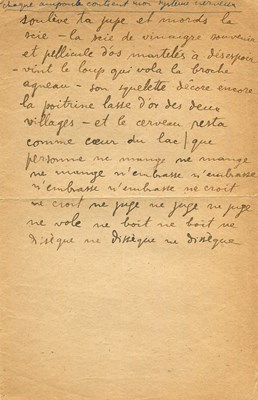 chaque ampoule contient mon système nerveux
soulève ta jupe et mords la
scie – la scie de vinaigre souvenir
et pellicule d'os martelés à désespoir
– vint le loup qui vola la broche
agneau – son squelette décore encore
la poitrine lasse d'or des deux
villages – et le cerveau resta
comme cœur du lac | que
personne ne mange ne mange
ne mange n'embrasse n'embrasse
n'embrasse n'embrasse ne croit
ne croit ne juge ne juge ne juge
ne vole ne boit ne boit ne
dissèque ne dissèque ne dissèque